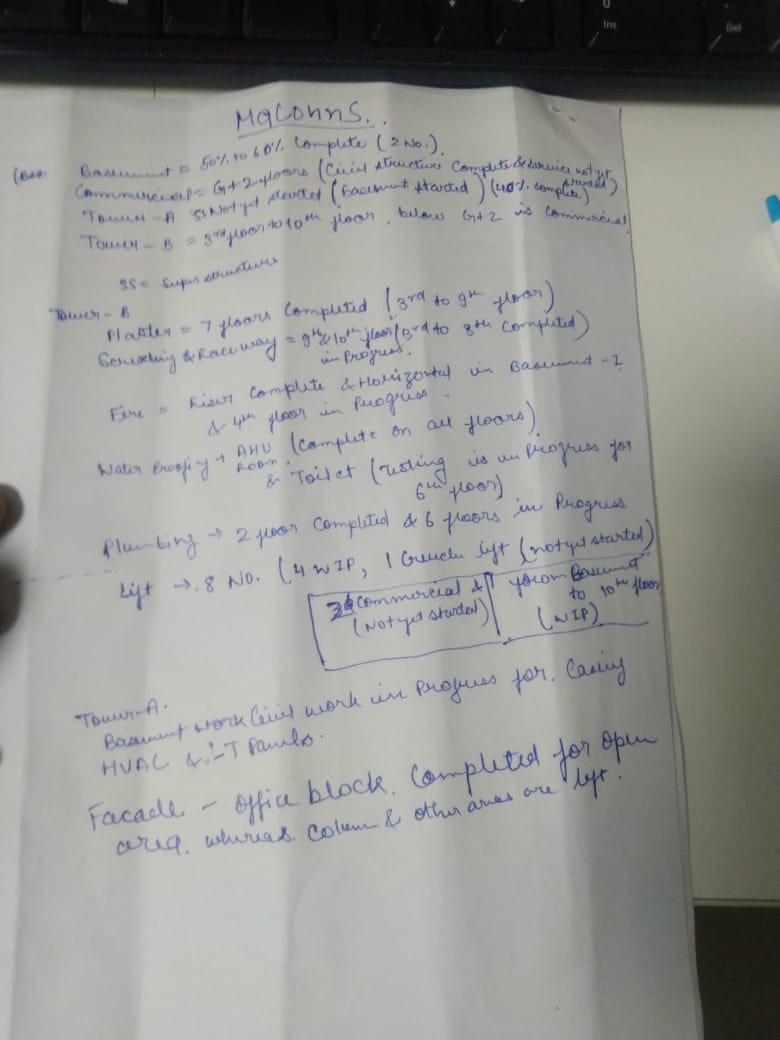 Ins
Del
MqConnS.
Basement = 50% to 60% Complete (2 No.).
Commercial = G+2 floors (Civil structure Complete & service not yet started)
Tower - A SS Not yet started (Basement started) (40% complete)
Tower - B = 3rd floor to 10th floor, below G+2 is commercial.
SS = Super structure
Tower - B
Plaster = 7 floors Completed (3rd to 9th floor)
& Raceway = 9th & 10th floor (3rd to 8th Completed)
in Progress.
Fire = Riser Complete & Horizontal in Basement - I
& 4th floor in Progress.
Water Proofing → AHU Room (Complete on all floors)
& Toilet (Testing is in Progress for
6th floor)
Plumbing → 2 floor Completed & 6 floors in Progress
Lift → 8 No. (4 WIP, 1 lift (not yet started)
3 Commercial & (Not yet started)
from Basement to 10th floor (WIP)
Tower-A.
Basement work Civil work in Progress for
HVAC & Panels.
Facade - office block. Completed for open
area. whereas Column & other areas are left.